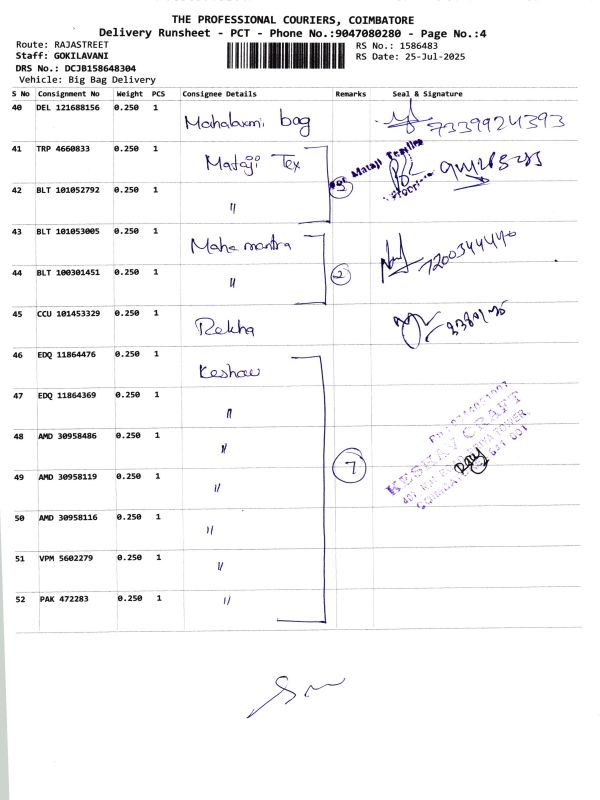 THE PROFESSIONAL COURIERS, COIMBATORE
Delivery Runsheet - PCT - Phone No.:9047080280 - Page No.:4
Route: RAJASTREET
Staff: GOKILAVANI
DRS No.: DCJB158648304
Vehicle: Big Bag Delivery
RS No.: 1586483
RS Date: 25-Jul-2025
S No Consignment No Weight PCS Consignee Details Remarks Seal & Signature
40 DEL 121688156 0.250 1 Mahalaxmi bag 7339924393
41 TRP 4660833 0.250 1 Mataji Tex For Mataji Textiles
42 BLT 101052792 0.250 1 "
43 BLT 101053005 0.250 1 Maha mantra 7200344440
44 BLT 100301451 0.250 1 " 2
45 CCU 101453329 0.250 1 Rekha
46 EDQ 11864476 0.250 1 Keshav
47 EDQ 11864369 0.250 1 "
48 AMD 30958486 0.250 1 " 7
49 AMD 30958119 0.250 1 " KESHAV CRAFT
50 AMD 30958116 0.250 1 "
51 VPM 5602279 0.250 1 "
52 PAK 472283 0.250 1 "